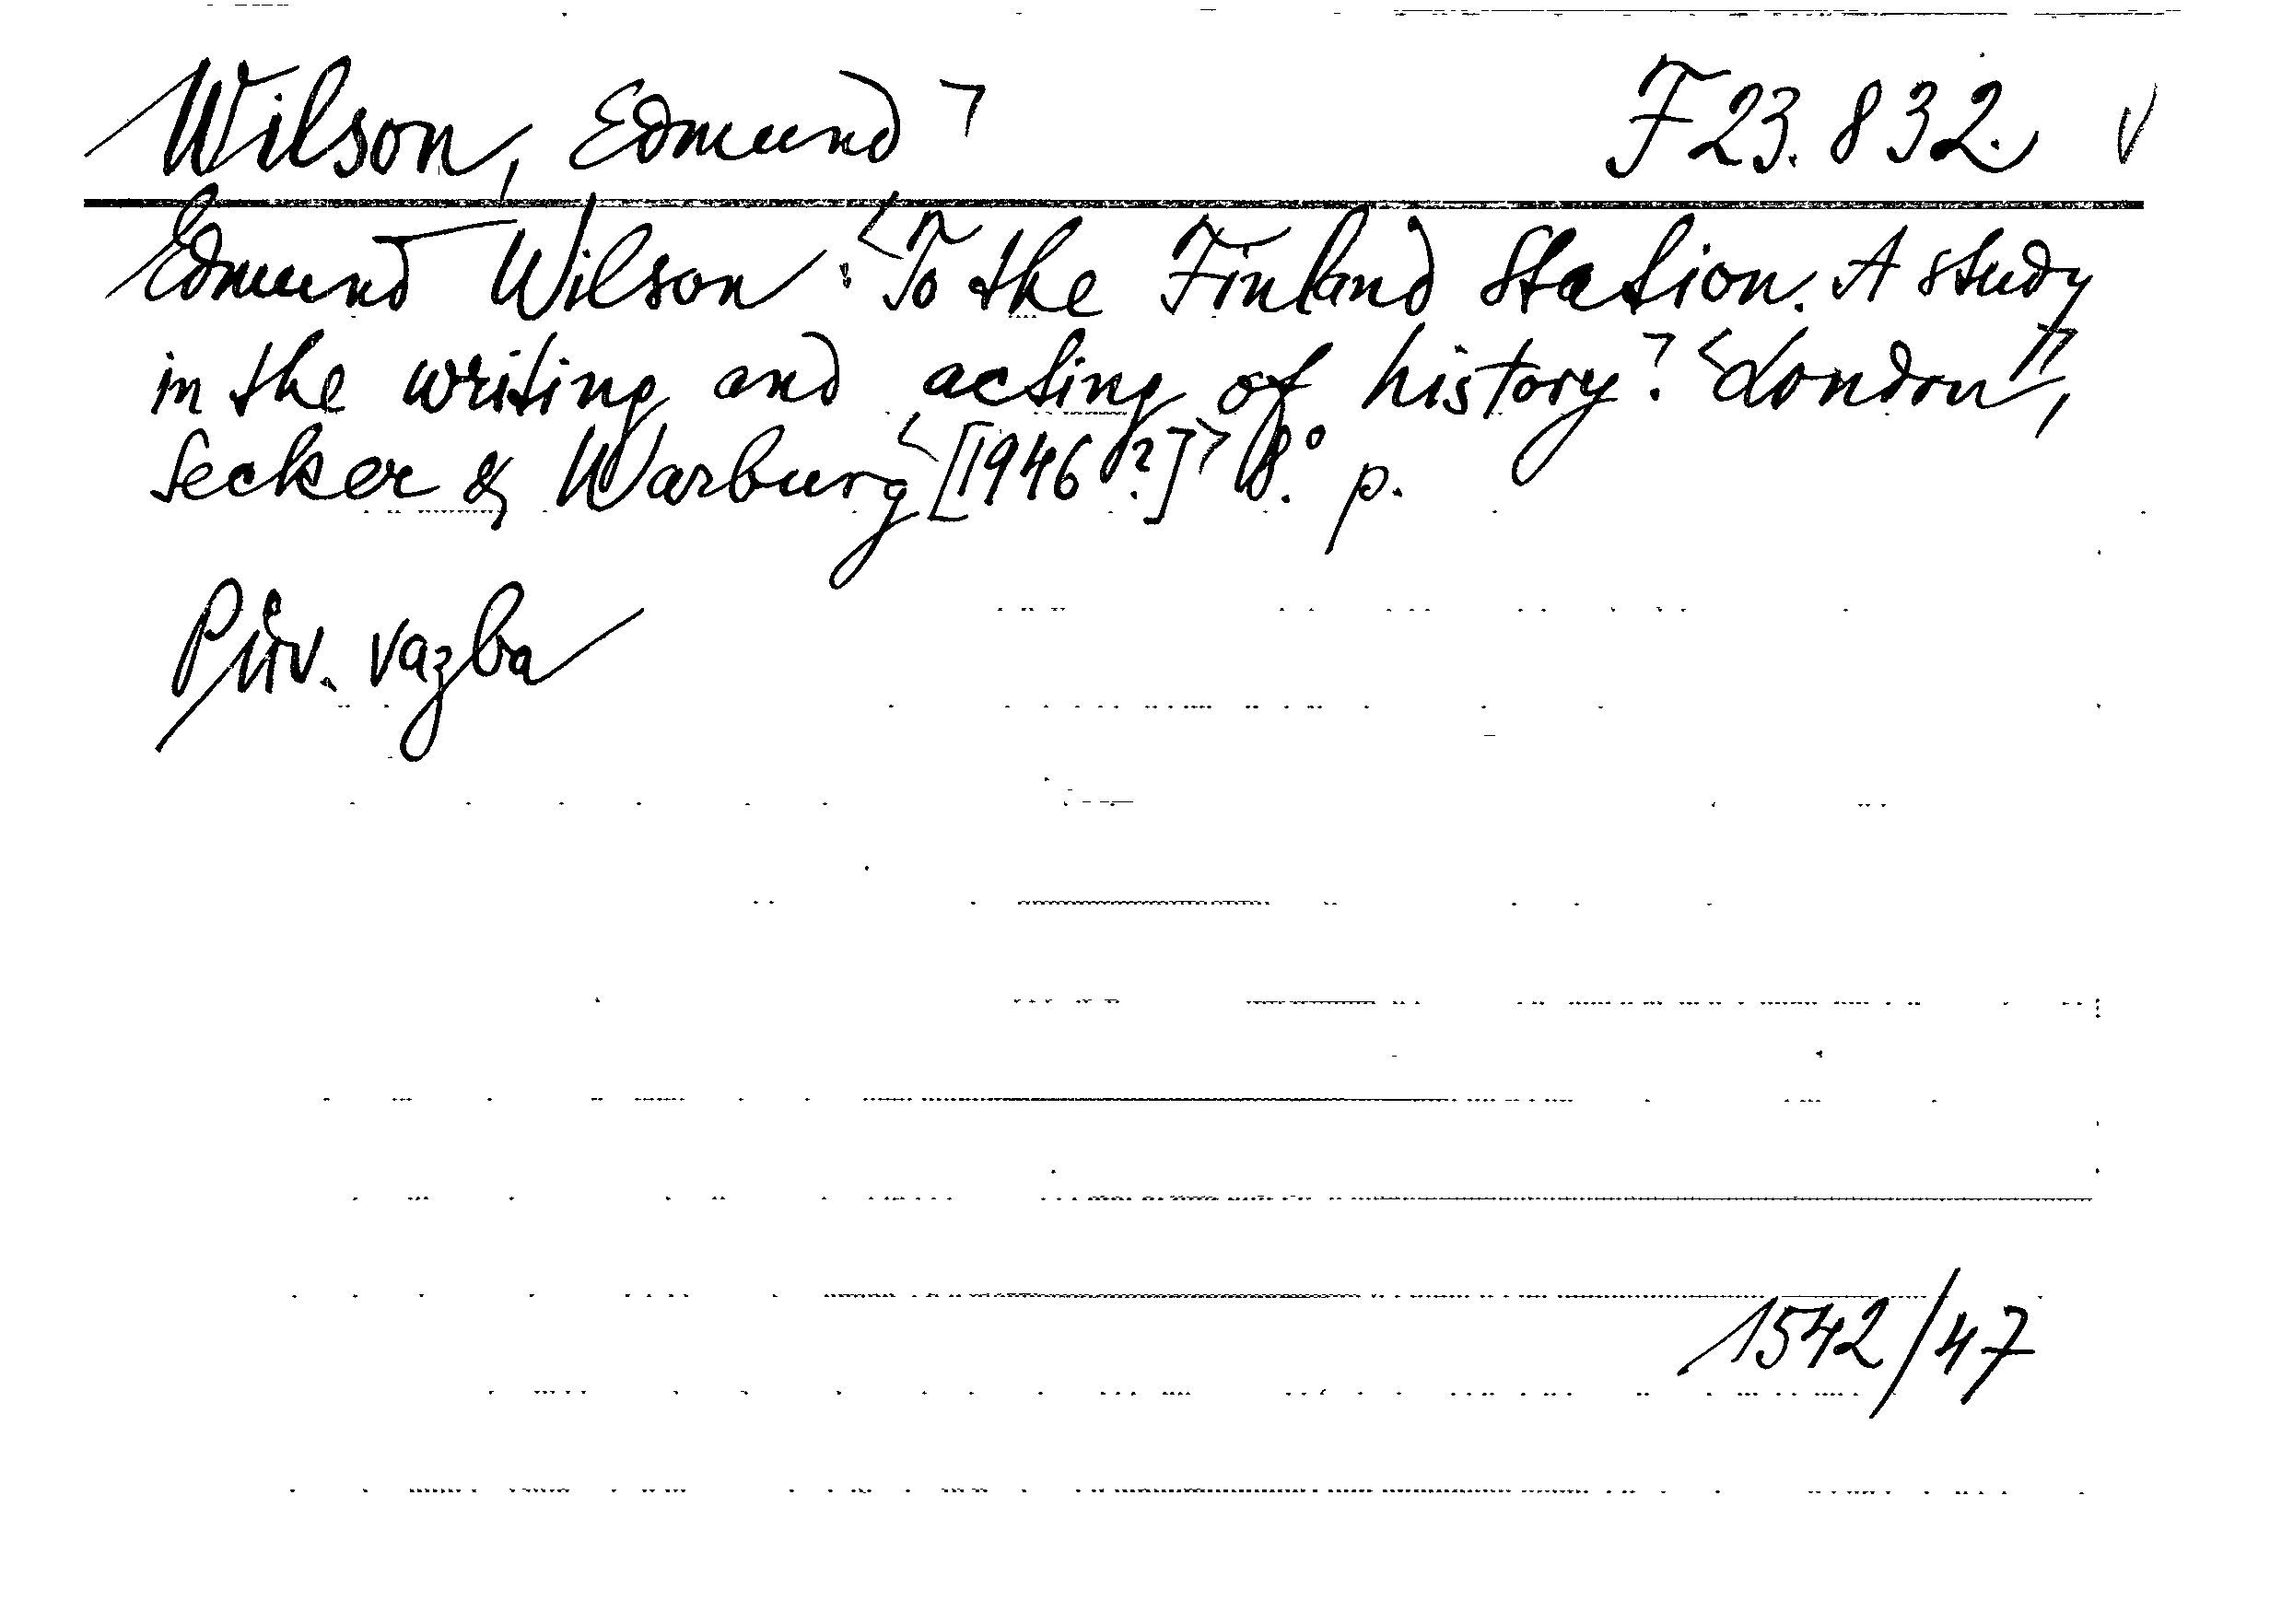 Wilson, Edmund ⌝ F 23.832. √
Edmund Wilson: <To the Finland Station. A study
in the writing and acting of history.⌝ <London⌝,
Secker & Warburg <[1946?]⌝ 8.° p.
Pův. vazba
1542/47